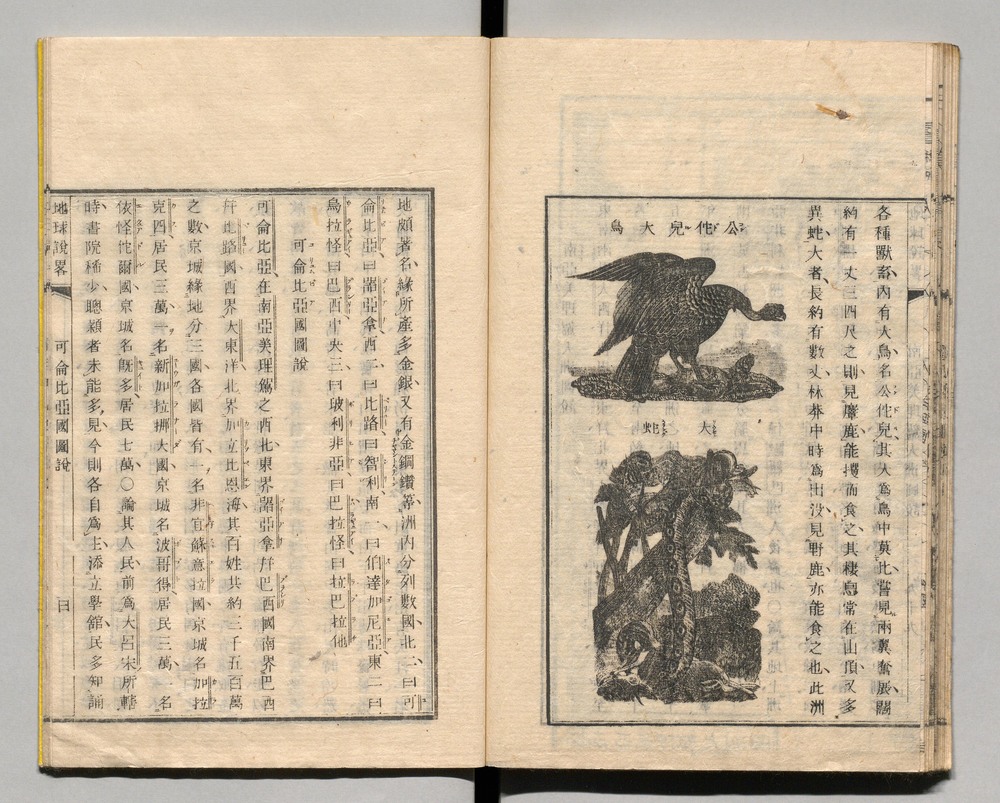 各種獸畜內有大鳥名公佗兒其大爲鳥中莫比嘗見兩翼奮展闊
約有一丈三四尺之則見麋鹿能攫而食之其棲息常在山頂又多
異蛇大者長約有數丈林莽中時爲出沒見野鹿亦能食之也此洲
公佗兒大鳥
大蛇
地頗著名緣所產多金銀又有金鋼鑽等洲內分列數國北二曰可
侖比亞曰器亞拿西二曰比路曰智利南一曰伯達加尼亞東二曰
烏拉怪曰巴西中央三曰玻利非亞曰巴拉怪曰拉巴拉他
可侖比亞國圖說
可侖比亞在南亞美理駕之西北東界器亞拿幷巴西國南界巴西
幷比路國西界大東洋北界加立比恩海其百姓共約二千五百萬
之數京城緣地分三國各國皆有一名非宜蘇意拉國京城名加拉
克西居民三萬一名新加拉挪大國京城名波哥得居民三萬一名
依怪佗爾國京城名旣多居民七萬○論其人民前爲大呂宋所轄
時書院稀少聰穎者未能多見今則各自爲主添立學館民多知誦
地球說畧
可侖比亞國圖說